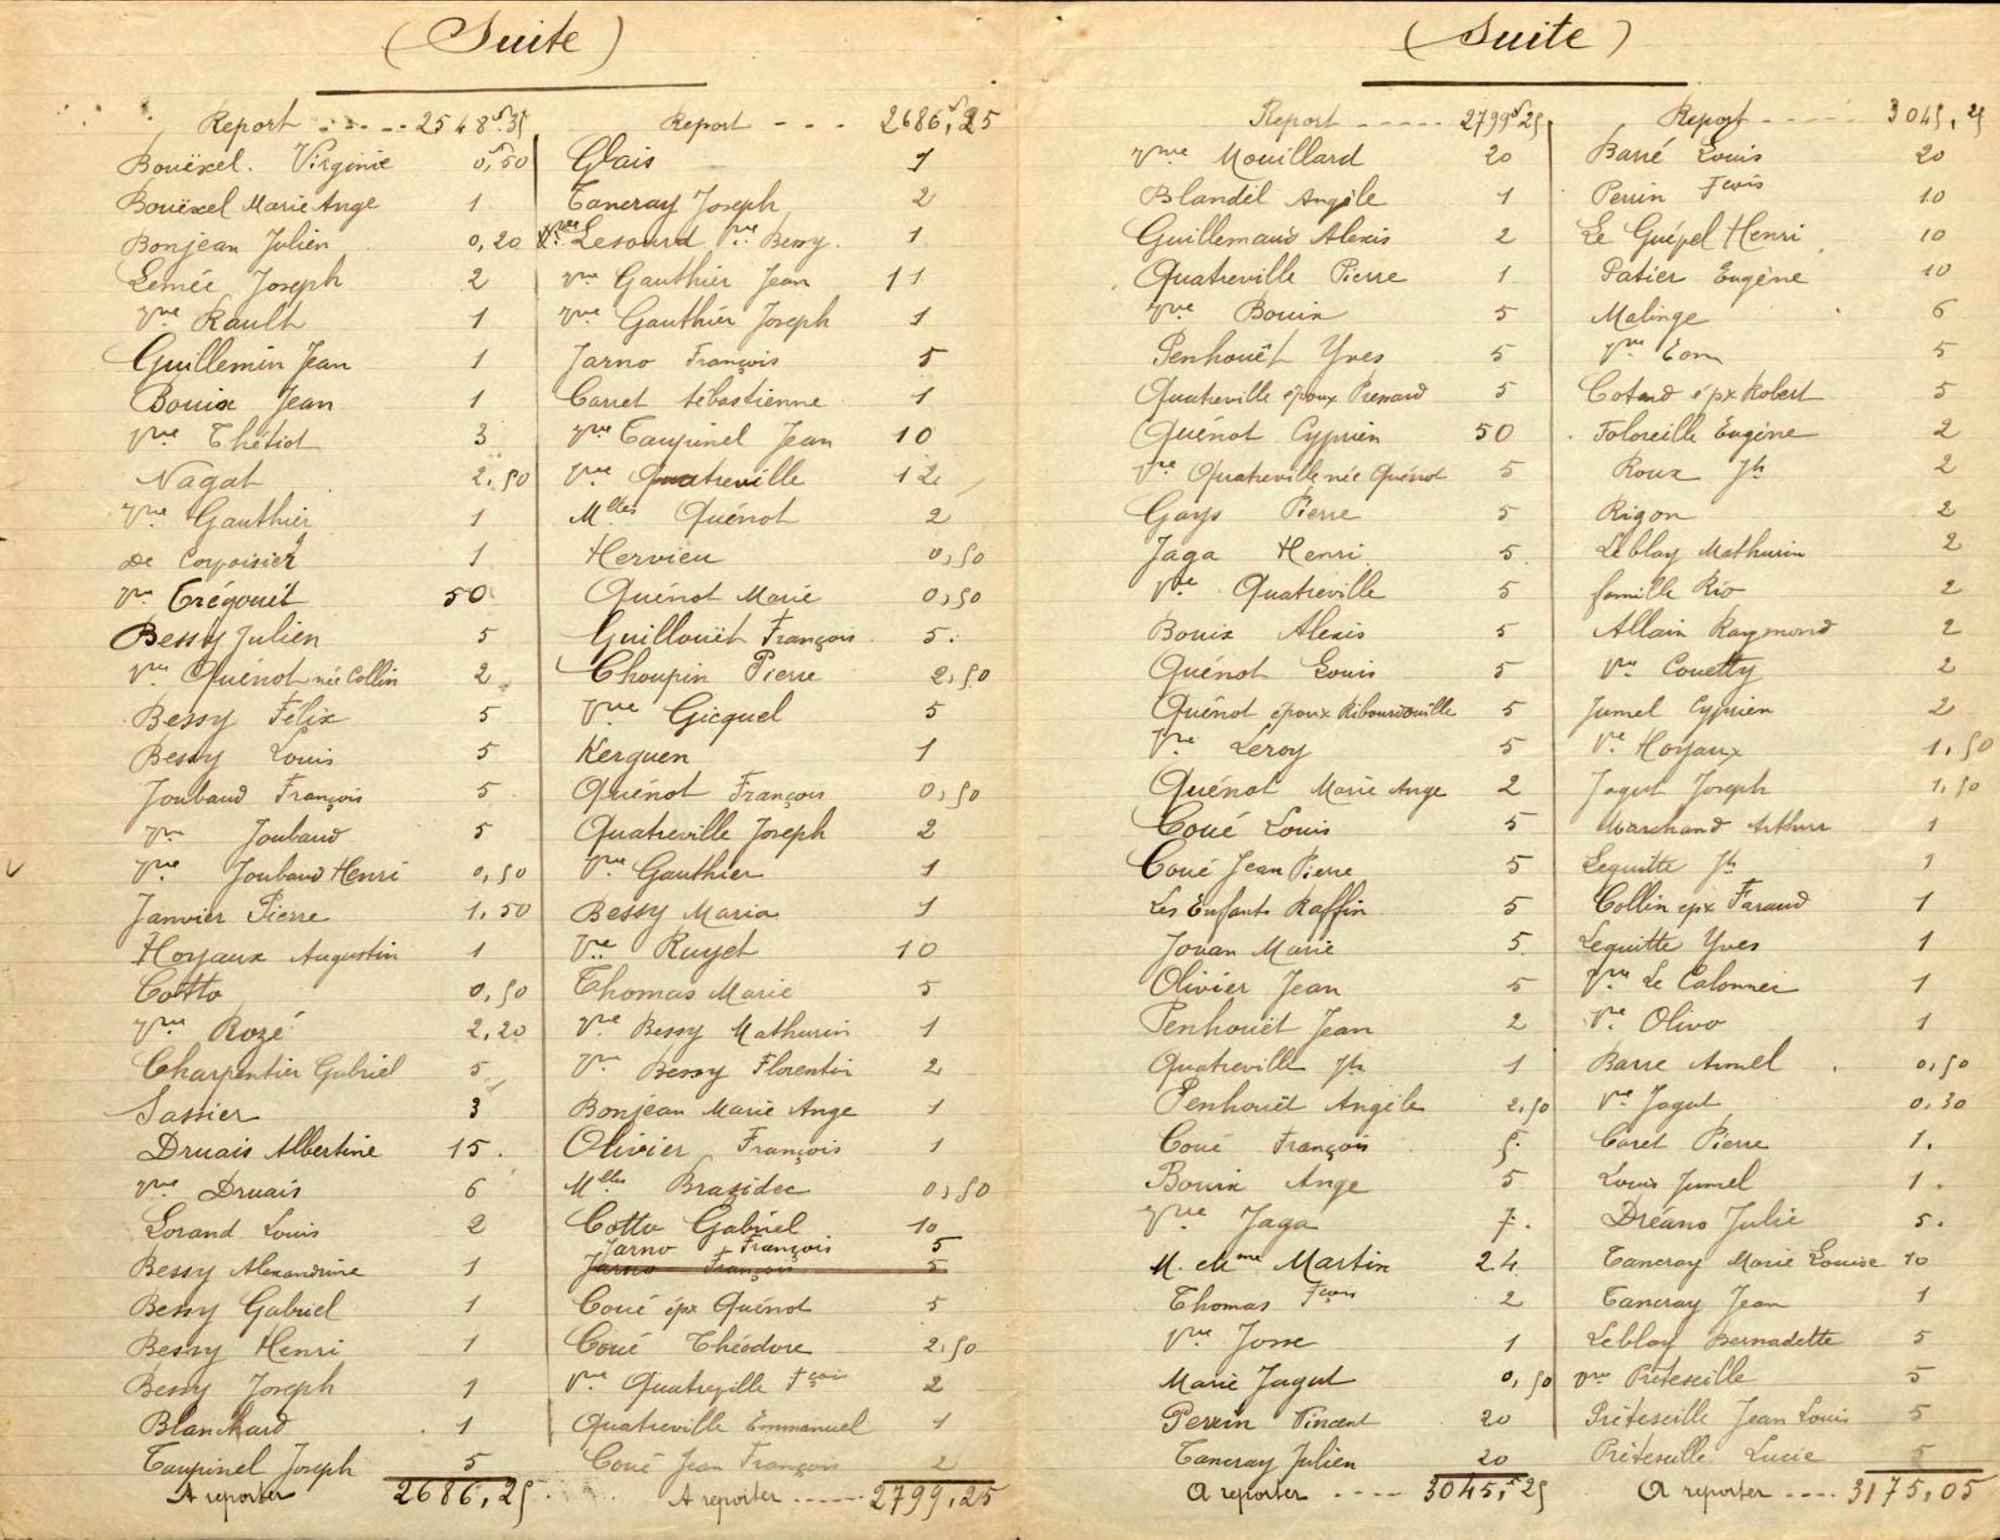 (Suite)
Report ..... 2548f.35
Bouëxel. Virginie 0f,50
Bouëxel Marie Ange 1
Bonjean Julien 0,20
Lemée Joseph 2
Vve Rault 1
Guillemin Jean 1
Bouix Jean 1
Vve Thétiot 3
Nagat 2,50
Vve Gauthier 1
de Corpoisier 1
Vve Trégouët 50
Bessy Julien 5
Vve Quénot née Collin 2
Bessy Félix 5
Bessy Louis 5
Joubaud François 5
Vve Joubaud 5
Vve Joubaud Henri 0,50
Janvier Pierre 1,50
Hoyaux Augustin 1
Cotto 0,50
Vve Rozé 2,20
Charpentier Gabriel 5
Sassier 3
Druais Albertine 15.
Vve Druais 6
Lorand Louis 2
Bessy Alexandrine 1
Bessy Gabriel 1
Bessy Henri 1
Bessy Joseph 1
Blanchard 1
Taupinel Joseph 5
A reporter 2686,25
Report - - - 2686f,25
Glais 1
Tancray Joseph 2
Lesourd Bessy. 1
Vve Gauthier Jean 11
Vve Gauthier Joseph 1
Jarno François 5
Carret Sébastienne 1
Vve Taupinel Jean 10
Vve Quatreville 12
Mlles Quénot 2
Hervieu 0,50
Quénot Marie 0,50
Guillouët François 5.
Choupin Pierre 2,50
Vve Gicquel 5
Kerguen 1
Quénot François 0,50
Quatreville Joseph 2
Vve Gauthier 1
Bessy Maria 1
Vve Ruyet 10
Thomas Marie 5
Vve Bessy Mathurin 1
Vve Bessy Florentin 2
Bonjean Marie Ange 1
Olivier François 1
Mlles Brazidec 0,50
Cotto Gabriel 10
Jarno François 5
Jarno François 5
Coué épx Quénot 5
Coué Théodore 2,50
Vve Quatreville Fçois 2
Quatreville Emmanuel 1
Coué Jean François 2
A reporter ..... 2799,25
(Suite)
Report ----- 2799f25
Vve Mouillard 20
Blandel Angèle 1
Guillemaud Alexis 2
Quatreville Pierre 1
Vve Bouix 5
Penhouët Yves 5
Quatreville époux Pressard 5
Quénot Cyprien 50
Vve Quatreville née Quénot 5
Gays Pierre 5
Jaga Henri 5
Vve Quatreville 5
Bouix Alexis 5
Quénot Louis 5
Quénot époux Ribourdouille 5
Vve Leroy 5
Quénot Marie Ange 2
Coué Louis 5
Coué Jean Pierre 5
Les Enfants Raffin 5
Jouan Marie 5
Olivier Jean 5
Penhouët Jean 2
Quatreville Jh 1
Penhouët Angèle 2,50
Coué François 5.
Bouix Ange 5
Vve Jaga 7.
M. et Mme Martin 24
Thomas Fçois 2
Vve Josse 1
Marie Jagut 0,50
Perrin Vincent 20
Tancray Julien 20
A reporter ---- 3045,f25
Report ----- 3045,25
Barré Louis 20
Perrin Fçois 10
Le Guépel Henri 10
Patier Eugène 10
Malinge 6
Vve Eon 5
Cotard épx Robert 5
Foloreille Eugène 2
Roux Jh 2
Rigon 2
Leblay Mathurin 2
famille Rio 2
Allain Raymond 2
Vve Couetty 2
Jumel Cyprien 2
Ve Hoyaux 1,50
Jagut Joseph 1,50
Marchand Arthur 1
Leguitte Jh 1
Collin épx Faraud 1
Leguitte Yves 1
Vve Le Calonnec 1
Ve Olivo 1
Barre Armel 0,50
Ve Jagut 0.30
Caret Pierre 1.
Louis Jumel 1.
Dréano Julie 5.
Tancray Marie Louise 10
Tancray Jean 1
Leblay Bernadette 5
Vve Préteseille 5
Préteseille Jean Louis 5
Préteseille Lucie 5
A reporter .... 3175,05